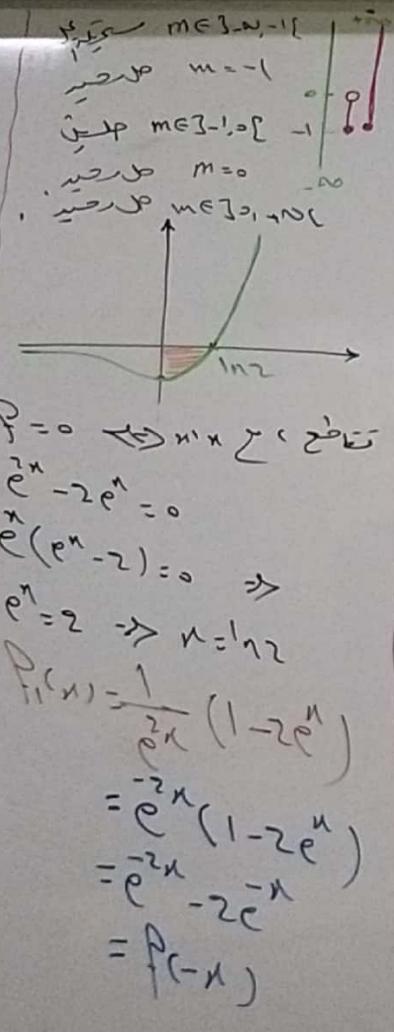 m∈]-∞,-1[ مستحيلة
m=-1 حل وحيد
m∈]-1,0[ حلين
m=0 حل وحيد.
m∈]0,+∞[ حل وحيد.
+∞
0
-1
-∞
ln2
f=0 ⇔ x'x تقاطع مع
e^{2x}-2e^x=0
e^x(e^x-2)=0 ⇒
e^x=2 ⇒ x=ln2
f₁(x)=\frac{1}{e^{2x}}(1-2e^x)
=e^{-2x}(1-2e^x)
=e^{-2x}-2e^{-x}
=f(-x)